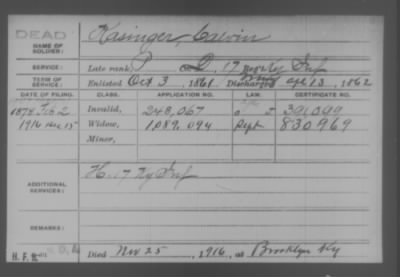 DEAD
NAME OF SOLDIER: Kasinger, Calvin
SERVICE: Late rank P Co. D, 17 Reg't Ky Inf
TERM OF SERVICE: Enlisted Oct 3, 1861 Discharged Apl 13, 1862
DATE OF FILING. CLASS. APPLICATION NO. LAW. CERTIFICATE NO.
1878 Feb 2 Invalid, 248,067 391099
1916 Dec 15 Widow, 1,089,094 Sept 830969
Minor,
ADDITIONAL SERVICES: H. 17 Ky Inf
REMARKS:
H. F. Died Nov 25, 1916, at Brooklyn Ky